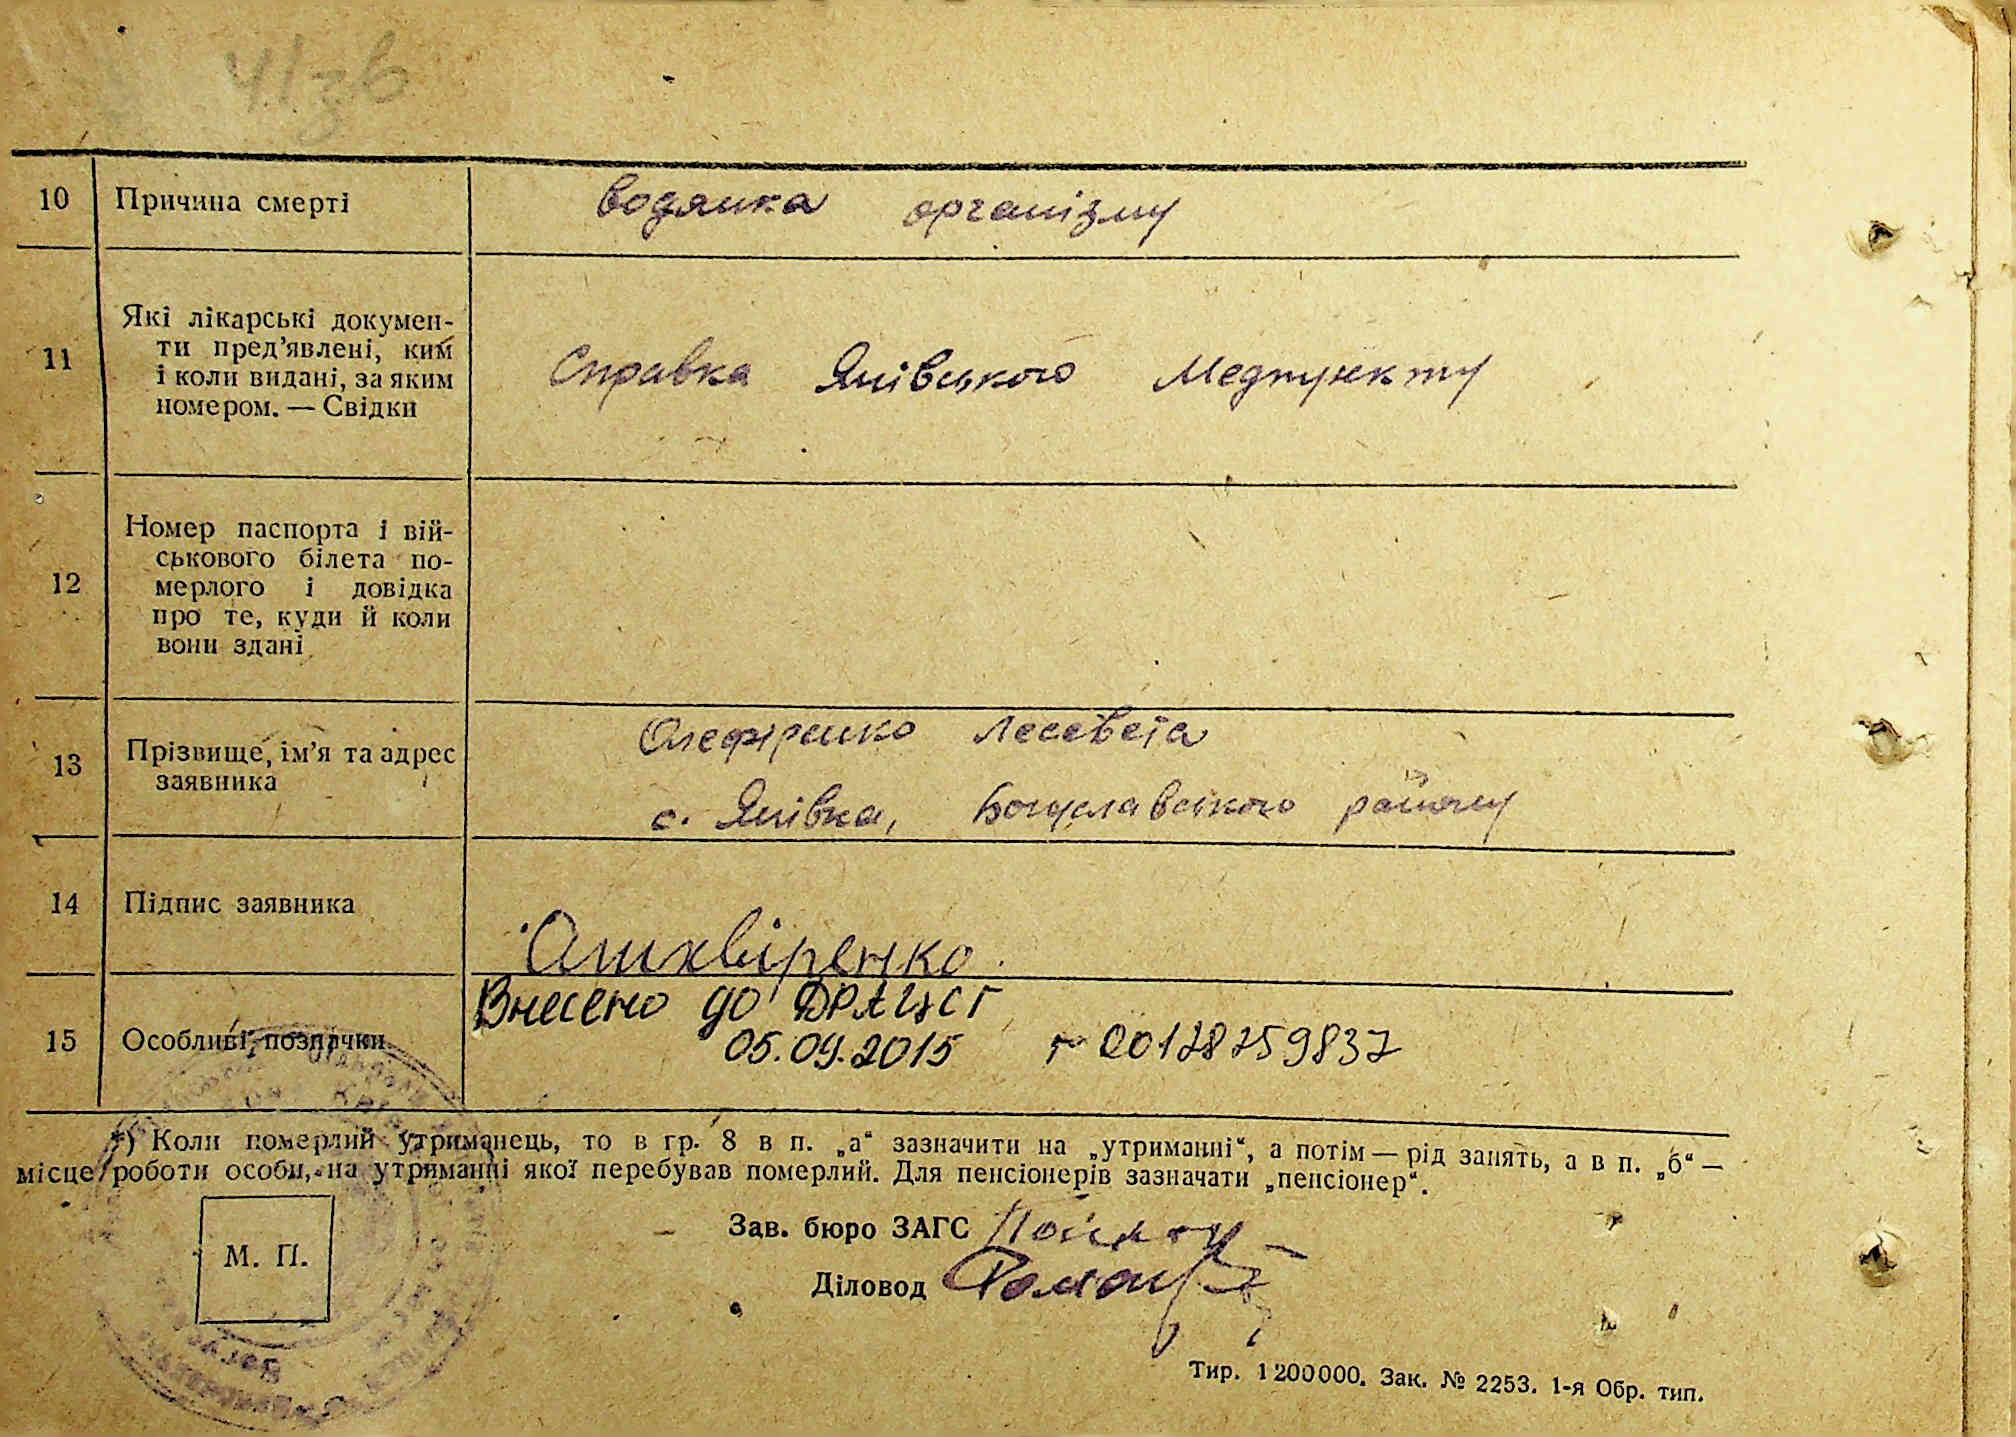 10 Причина смерті водянка організму
11 Які лікарські докумен-
ти пред’явлені, ким
і коли видані, за яким
номером. — Свідки
Справка Янівського Медпункту
12 Номер паспорта і вій-
ськового білета по-
мерлого і довідка
про те, куди й коли
вони здані
13 Прізвище, ім’я та адрес
заявника
Олефіренко Лесевета
с. Янівка, Богуславського району
14 Підпис заявника
15 Особливі позначки
Внесено до ДРАЦСГ
05.09.2015 00128259837
*) Коли померлий утриманець, то в гр. 8 в п. „а“ зазначити на „утриманні“, а потім — рід занять, а в п. „б“ —
місце роботи особи, на утриманні якої перебував померлий. Для пенсіонерів зазначати „пенсіонер“.
М. П.
Зав. бюро ЗАГС
Діловод
Тир. 1200000. Зак. № 2253. 1-я Обр. тип.